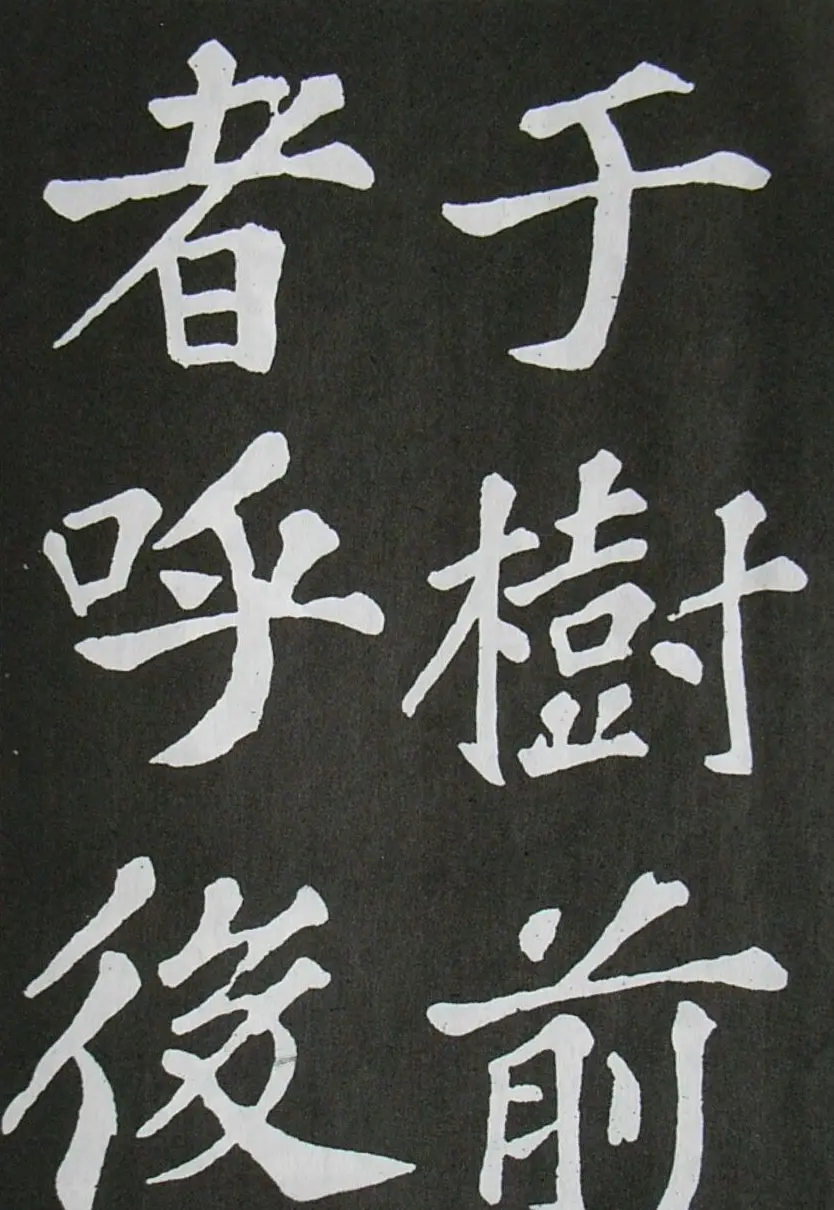 于樹前
者呼後